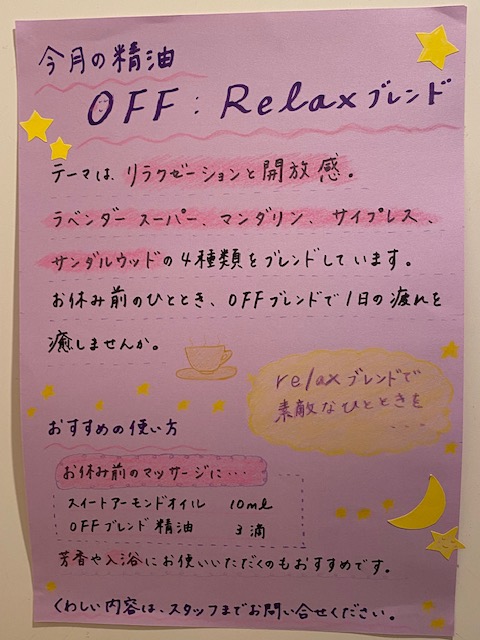 今月の精油
OFF : Relaxブレンド
テーマは、リラクゼーションと開放感。
ラベンダースーパー、マンダリン、サイプレス、
サンダルウッドの4種類をブレンドしています。
お休み前のひととき、OFFブレンドで1日の疲れを
癒しませんか。
relaxブレンドで
素敵なひとときを
...
おすすめの使い方
お休み前のマッサージに…
スイートアーモンドオイル 10ml
OFFブレンド精油 3滴
芳香や入浴にお使いいただくのもおすすめです。
くわしい内容は、スタッフまでお問い合せください。